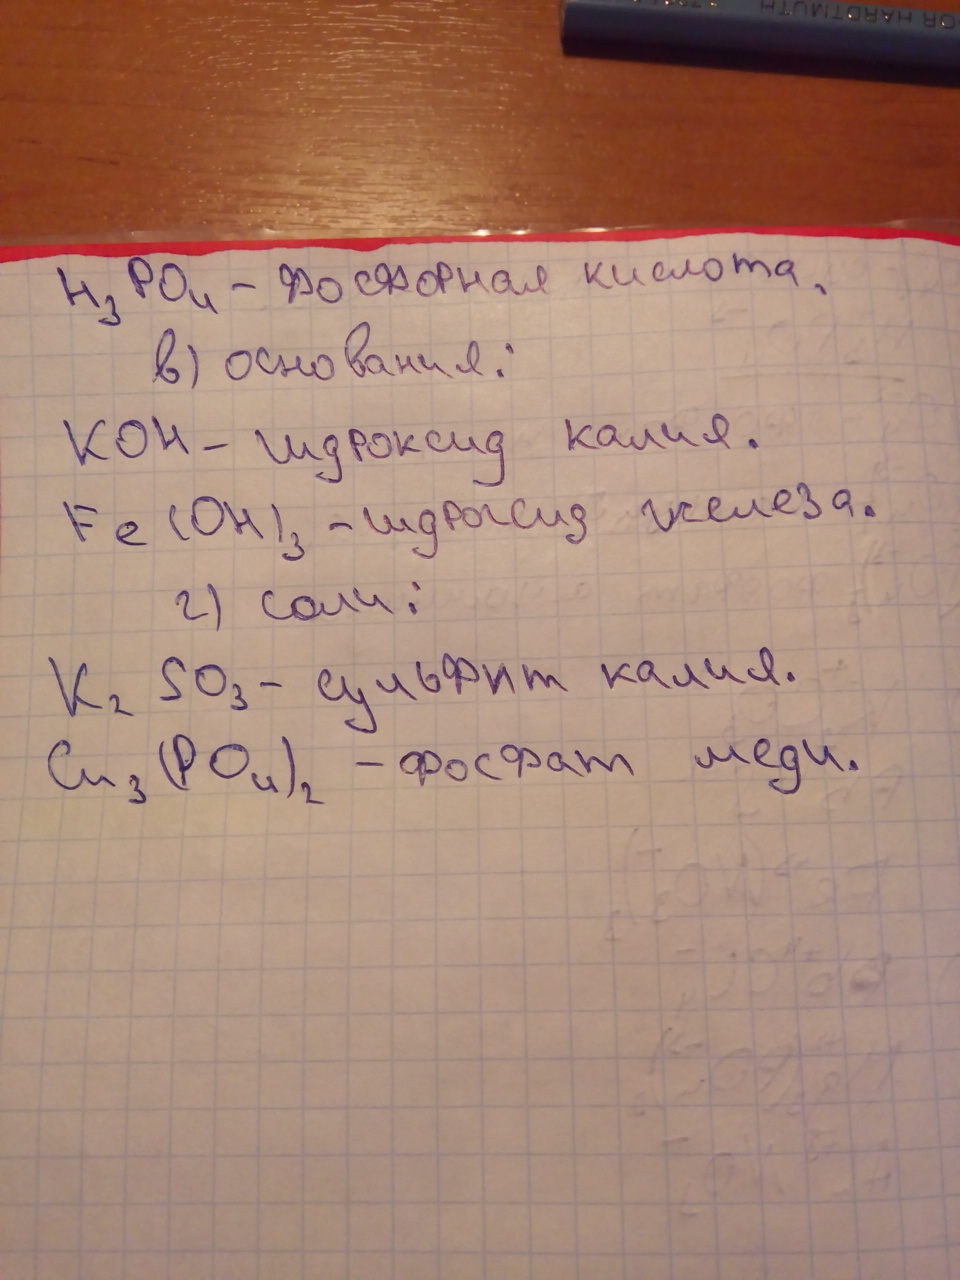 HARDTMUTH
H₃PO₄ - фосфорная кислота.
в) основания:
KOH - гидроксид калия.
Fe(OH)₃ - гидроксид железа.
г) соли:
K₂SO₃ - сульфит калия.
Cu₃(PO₄)₂ - фосфат меди.